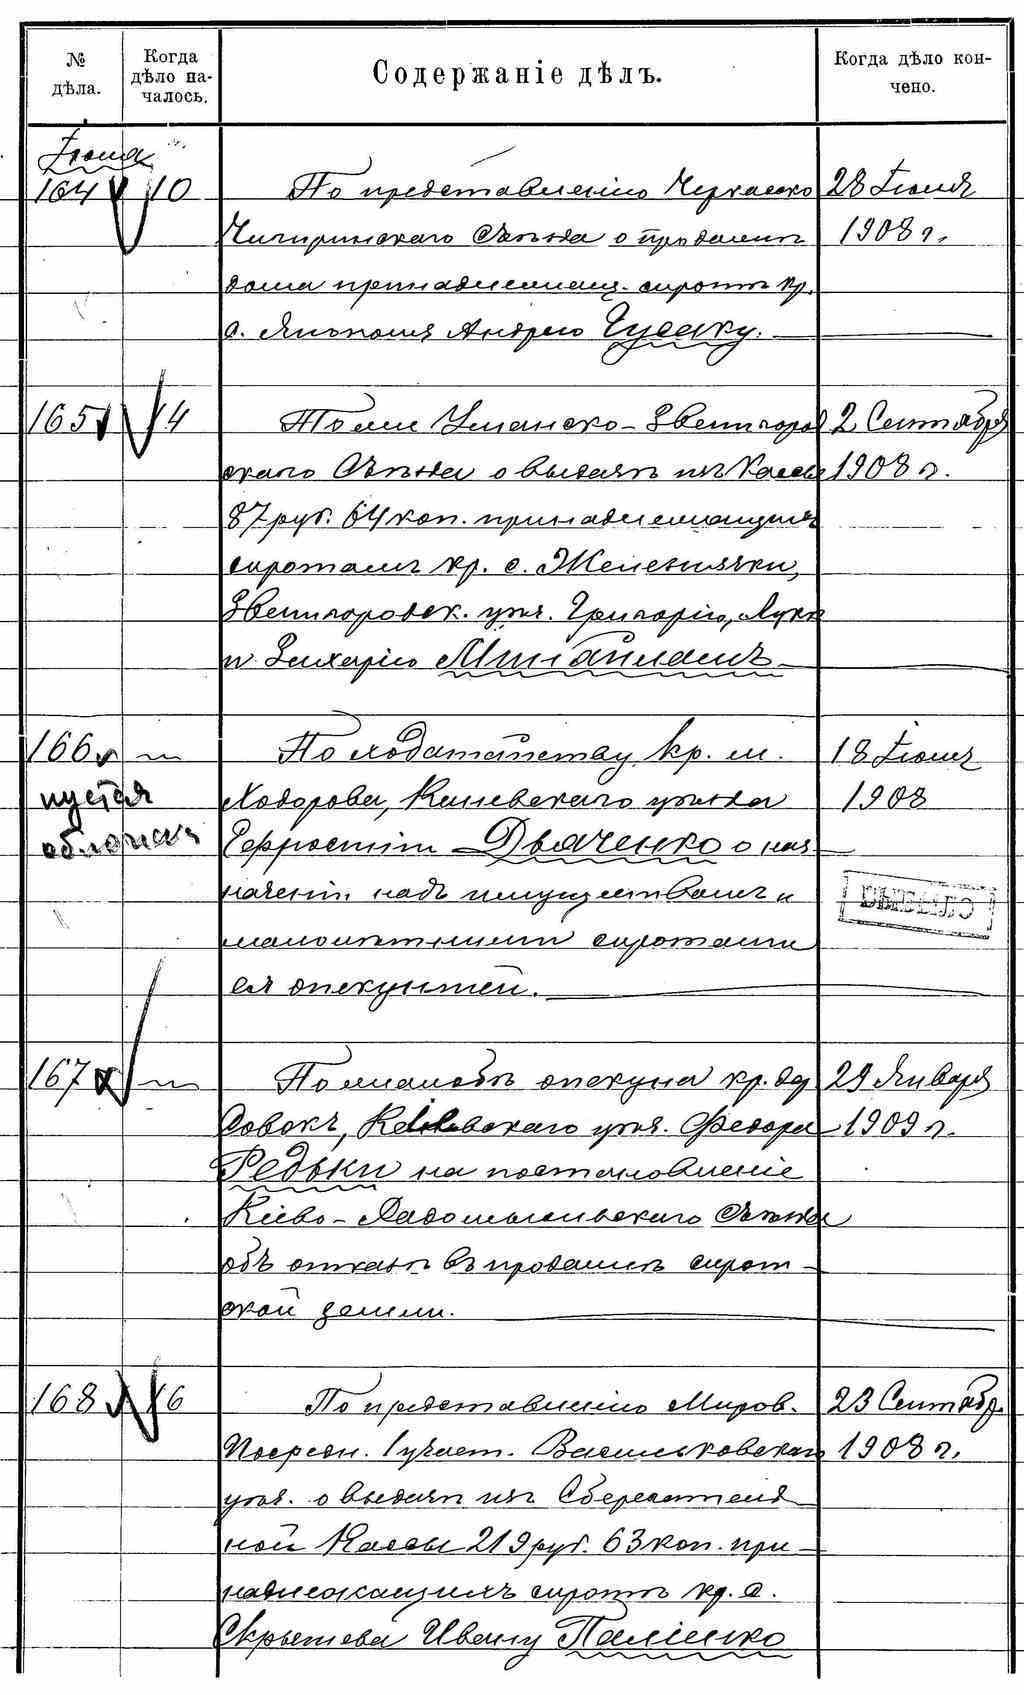 № дѣла.
Когда дѣло началось.
Содержаніе дѣлъ.
Когда дѣло кончено.
Іюня
164 10 По представленію Черкасско 28 Іюля
Чигиринскаго Съѣзда о продажѣ 1908 г.
дома принадлежащ. сиротѣ кр.
с. Андрею Гусаку.
165 14 То же Уманско-Звенигород 2 Сентября
скаго Съѣзда о выдачѣ изъ Кассы 1908 г.
87 руб. 64 коп. принадлежащихъ
сиротамъ кр. с. Желѣзнячки,
Звенигородск. уѣз. Григорію, Лукѣ
и Захарію
166 " По ходатайству кр. м. 18 Іюня
Ходорова, Каневскаго уѣзда 1908
пустая
Дьяченко о наз-
обложка
наченіи надъ имуществомъ и
малолѣтними сиротами
ея опекуншей.
167 " По жалобѣ опекуна кр. дер 29 Января
Совокъ, Кіевскаго уѣз. Федора 1909 г.
Редьки на постановленіе
Кіево-Радомысльскаго Съѣзда
объ отказѣ въ продажѣ сирот-
ской земли.
168 16 По представленію Миров. 23 Сентябр.
Посредн. 1 участ. Васильковскаго 1908 г.
уѣз. о выдачѣ изъ Сберегатель
ной Кассы 219 руб. 63 коп. при-
надлежащихъ сиротѣ кр. с.
Ивану Паліенко